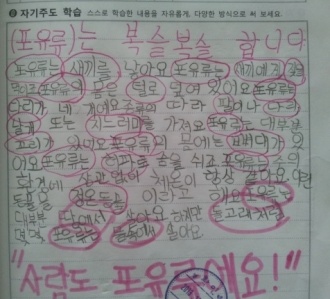 2 자기주도 학습 스스로 학습한 내용을 자유롭게, 다양한 방식으로 써 보세요.
(포유류)는 복슬복슬 합니다
포유류는 새끼를 낳아요 포유류는 새끼에게 젖을
먹이죠 포유류의 몸은 털로 덮여 있어요 포유류는
다리가 네 개에요 종류의 따라 팔이나 다리
날개 또는 지느러미를 가져요 포유류는 대부분
꼬리가 있어요 포유류의 몸에는 뼈대가 있
어요 포유류는 허파로 숨을 쉬고 포유류는 주의
환경에 상관 없이 체온이 항상 같아요 이런
동물을 정온동물 이라고 해요 포유류는
대부분 땅에서 살아요 하지만 돌고래처럼
몇몇 포유류는 물속에 살아요.
"사람도 포유류에요!"